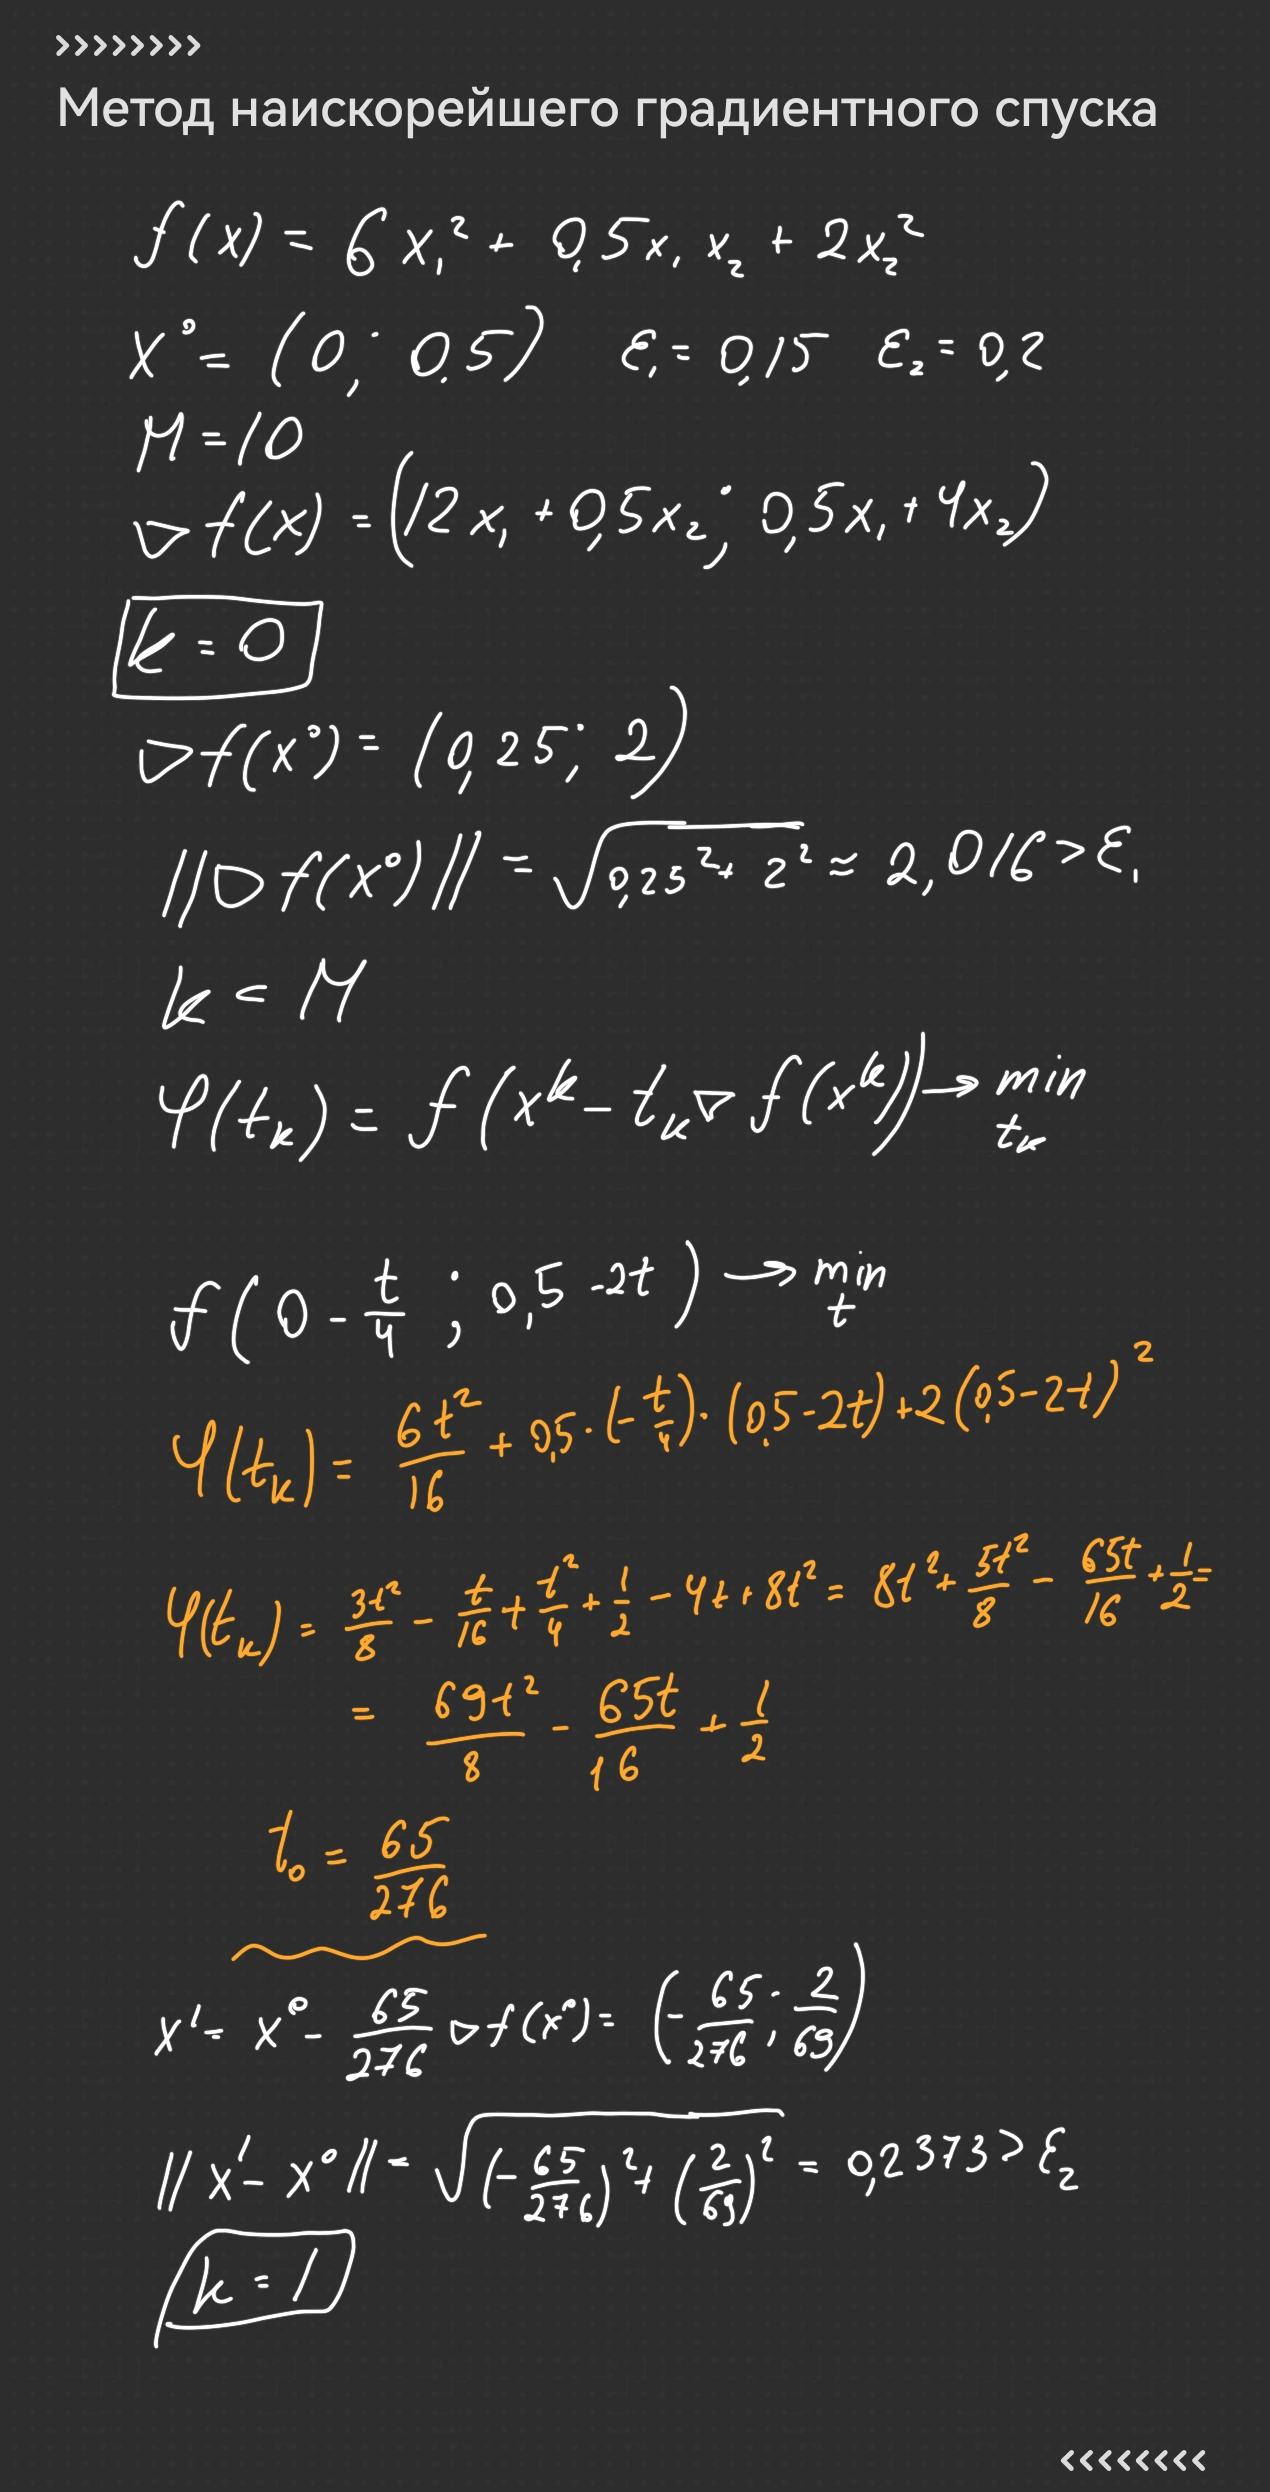 >>>>>>>>
Метод наискорейшего градиентного спуска
f(x) = 6x₁² + 0,5x₁x₂ + 2x₂²
x⁰ = (0; 0.5) ε₁ = 0,15 ε₂ = 0,2
M = 10
▽f(x) = (12x₁ + 0,5x₂; 0,5x₁ + 4x₂)
k = 0
▽f(x⁰) = (0,25; 2)
||▽f(x⁰)|| = √(0,25² + 2²) ≈ 2,016 > ε₁
k < M
φ(tₖ) = f(xᵏ - tₖ▽f(xᵏ)) → min tₖ
f(0 - t/4; 0,5 - 2t) → min t
φ(tₖ) = 6t²/16 + 0,5·(-t/4)·(0,5 - 2t) + 2(0,5 - 2t)²
φ(tₖ) = 3t²/8 - t/16 + t²/4 + 1/2 - 4t + 8t² = 8t² + 5t²/8 - 65t/16 + 1/2 =
= 69t²/8 - 65t/16 + 1/2
t₀ = 65/276
x¹ = x⁰ - 65/276 ▽f(x⁰) = (-65/276; 2/69)
||x¹ - x⁰|| = √((-65/276)² + (2/69)²) = 0,2373 > ε₂
k = 1
<<<<<<<<